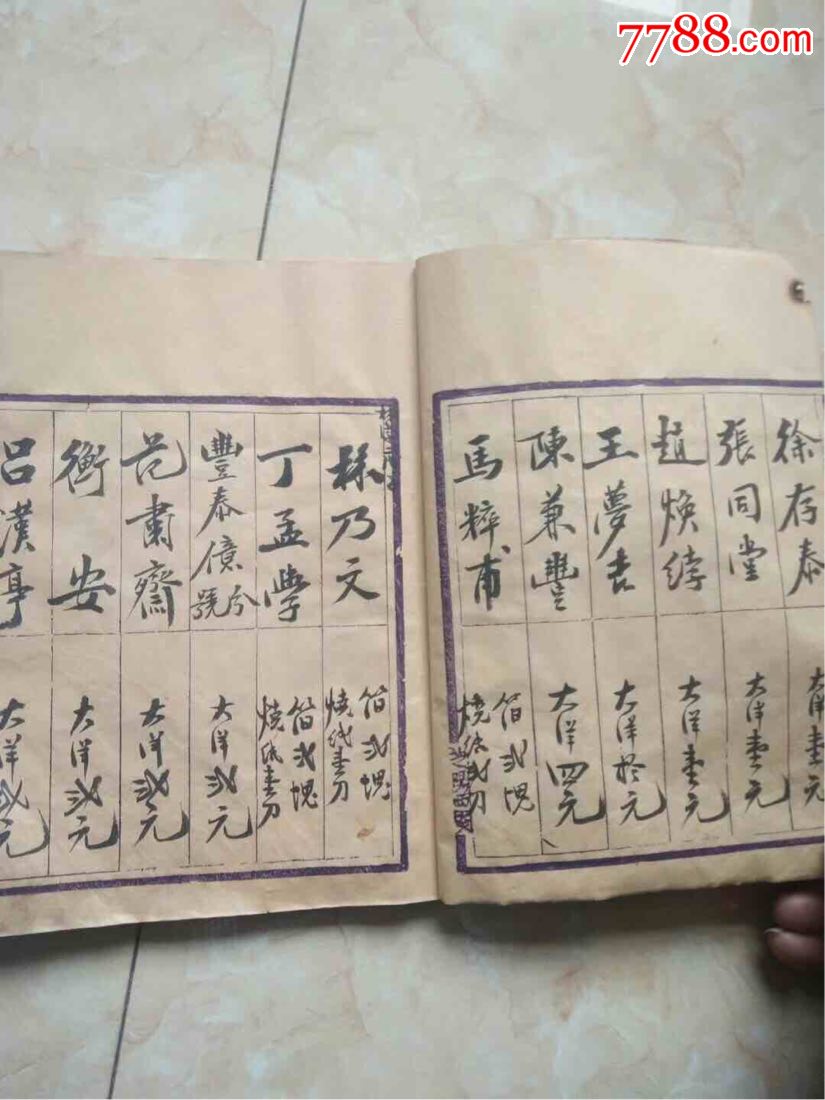 7788.com
徐存泰
大洋壹元
張同堂
大洋壹元
趙煥
大洋壹元
王夢
大洋拾元
陳兼豐
大洋四元
馬粹甫
箔弍塊
燒紙弍刀
孫乃文
箔弍塊
燒紙壹刀
丁孟學
箔弍塊
燒紙壹刀
豐泰億
號
大洋弍元
范肅齋
大洋弍元
衡安
大洋弍元
呂漢亭
大洋弍元